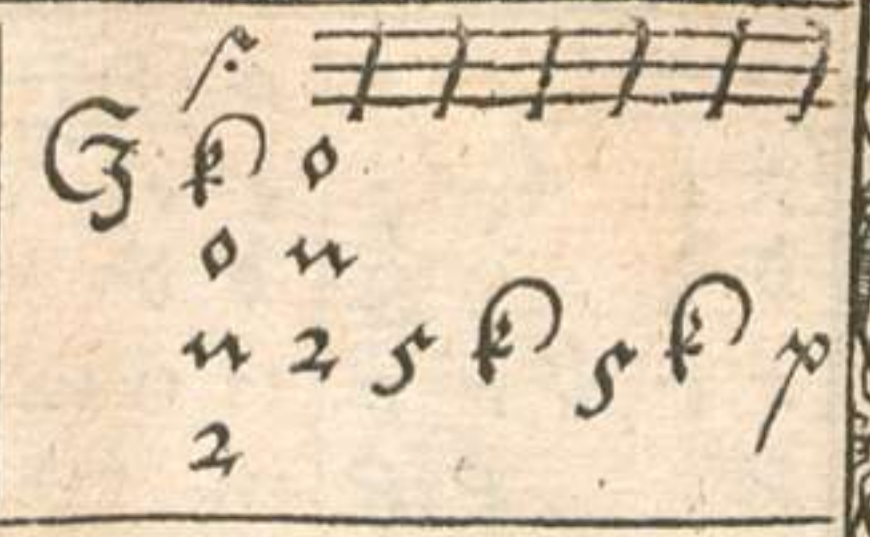 G k o
o n
n 2 5 k 5 k p
2